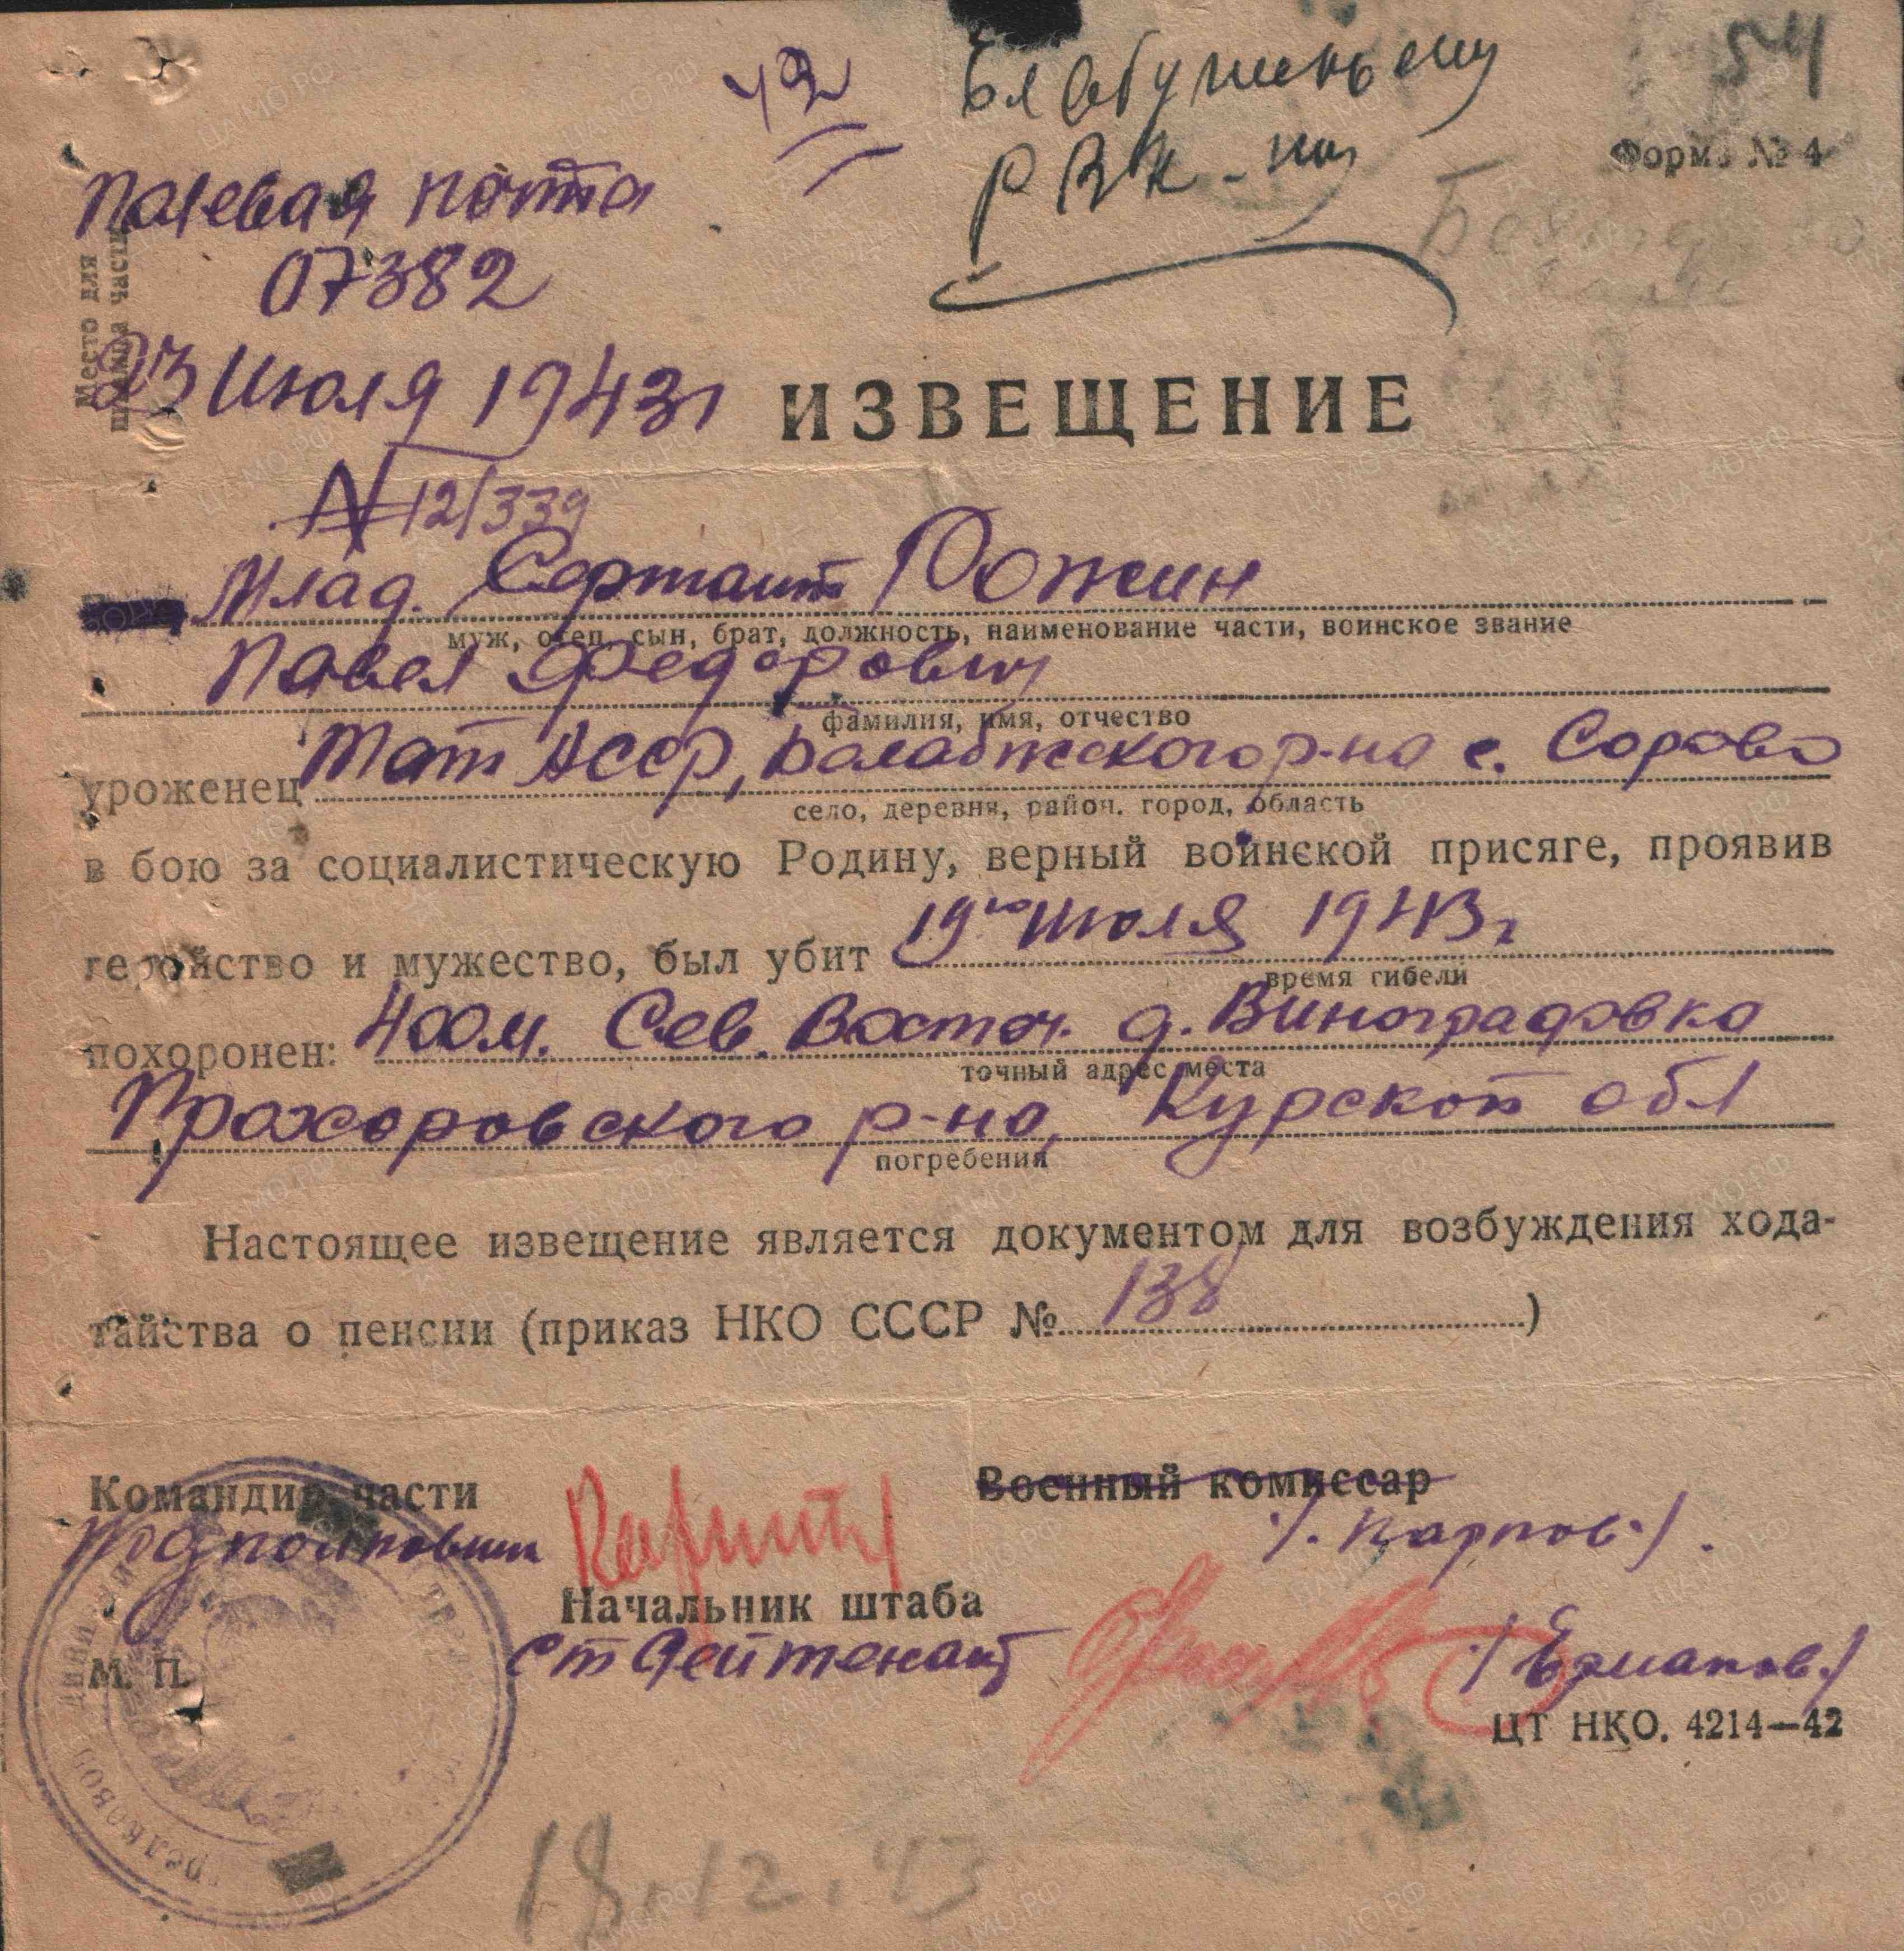 42
54
РВК
Форма № 4
Полевая почта
07382
Место для
штампа части
23 Июля 1943 г
ИЗВЕЩЕНИЕ
N 12/339
Млад. Сержант Рожин
муж, отец, сын, брат, должность, наименование части, воинское звание
Павел Федорович
фамилия, имя, отчество
уроженец Тат АССР, р-на с. Сорово
село, деревня, район, город, область
в бою за социалистическую Родину, верный воинской присяге, проявив
геройство и мужество, был убит 19го Июля 1943 г
время гибели
похоронен: 400 м. Сев. Восточ. д. Виноградовка
точный адрес места
Прохоровского р-на, Курской обл
погребения
Настоящее извещение является документом для возбуждения хода-
тайства о пенсии (приказ НКО СССР № 138)
Командир части
Военный комиссар
Подполковник
/. Карпов./.
Начальник штаба
Ст Лейтенант
/Ермаков/
М. П.
ЦТ НКО. 4214—42
18.12.43